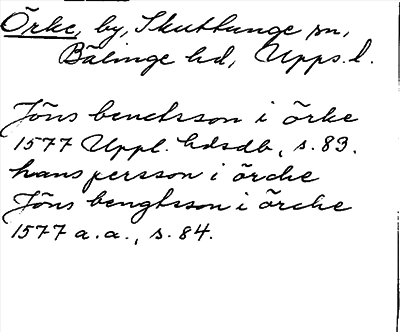 Örke, by, Skuttunge sn,
Bälinge hd, Upps. l.
Jöns benctsson i örke
1577 Uppl. hdsdb, s. 83.
hans persson i örcke
Jöns bengtsson i örcke
1577 a.a., s. 84.